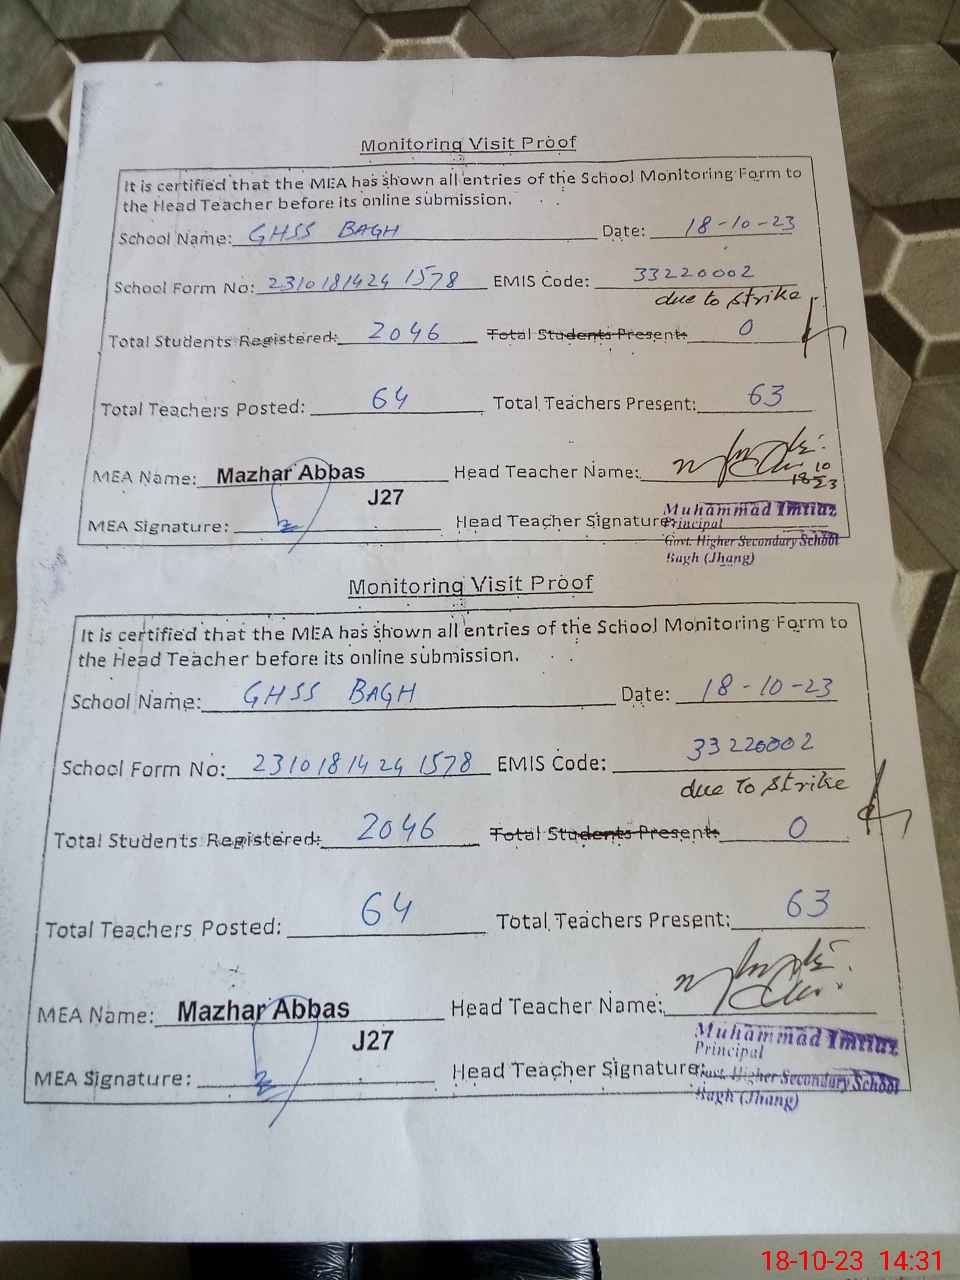 Monitoring Visit Proof
It is certified that the MEA has shown all entries of the School Monitoring Form to
the Head Teacher before its online submission.
School Name: GHSS BAGH Date: 18-10-23
School Form No: 2310181424 1578 EMIS Code: 33220002
due to strike
Total Students Registered: 2046 Total Students Present: 0
Total Teachers Posted: 64 Total Teachers Present: 63
MEA Name: Mazhar Abbas Head Teacher Name:
J27
MEA Signature: Head Teacher Signature:
Muhammad Imtiaz
Principal
Govt. Higher Secondary School
Bagh (Jhang)
Monitoring Visit Proof
It is certified that the MEA has shown all entries of the School Monitoring Form to
the Head Teacher before its online submission.
School Name: GHSS BAGH Date: 18-10-23
School Form No: 2310181424 1578 EMIS Code: 33220002
due to strike
Total Students Registered: 2046 Total Students Present: 0
Total Teachers Posted: 64 Total Teachers Present: 63
MEA Name: Mazhar Abbas Head Teacher Name:
J27
MEA Signature: Head Teacher Signature:
Muhammad Imtiaz
Principal
Govt. Higher Secondary School
Bagh (Jhang)
18-10-23 14:31